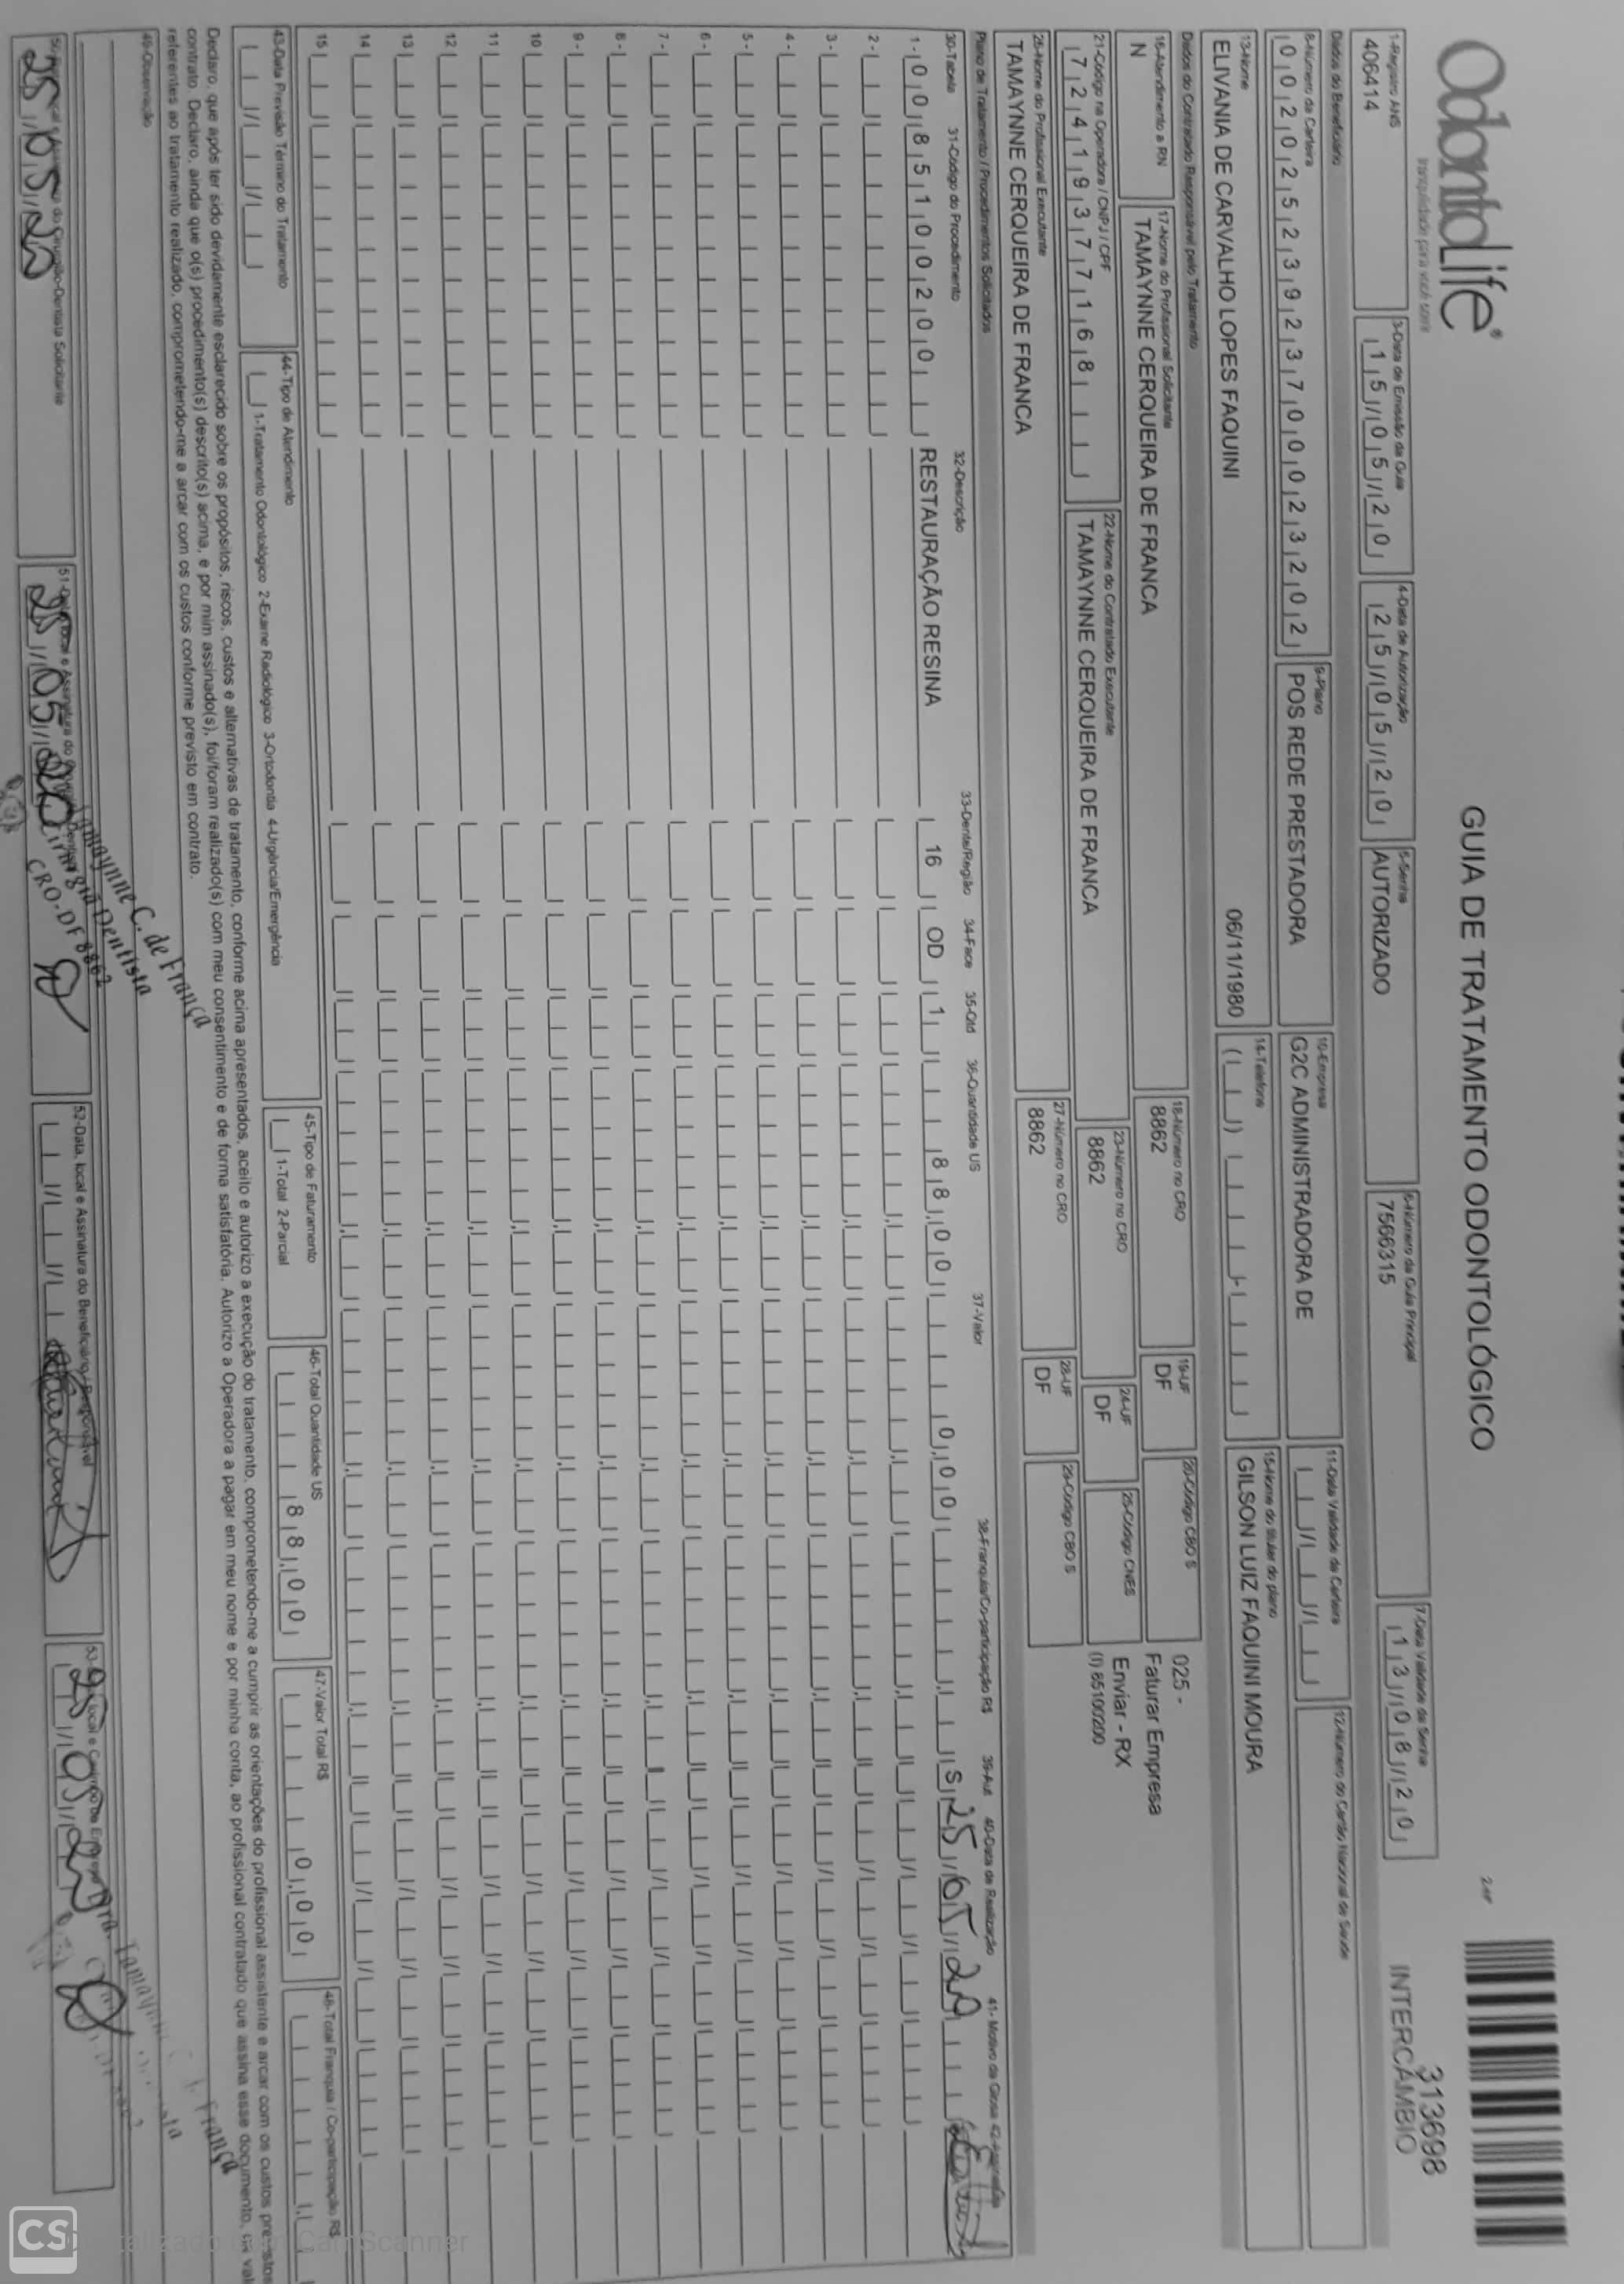 OdontoLife®
tranquilidade para você sorrir
GUIA DE TRATAMENTO ODONTOLÓGICO
2-Nº
313698
INTERCÂMBIO
1-Registro ANS
406414
3-Data de Emissão da Guia
15/05/20
4-Data de Autorização
25/05/20
5-Senha
AUTORIZADO
6-Número da Guia Principal
7566315
7-Data Validade da Senha
13/08/20
Dados do Beneficiário
8-Número da Carteira
00202523923700023202
9-Plano
POS REDE PRESTADORA
10-Empresa
G2C ADMINISTRADORA DE
11-Data Validade da Carteira
12-Número do Cartão Nacional de Saúde
13-Nome
ELIVANIA DE CARVALHO LOPES FAQUINI
06/11/1980
14-Telefone
15-Nome do titular do plano
GILSON LUIZ FAQUINI MOURA
Dados do Contratado Responsável pelo Tratamento
16-Atendimento a RN
N
17-Nome do Profissional Solicitante
TAMAYNNE CERQUEIRA DE FRANCA
18-Número no CRO
8862
19-UF
DF
20-Código CBO S
025 -
Faturar Empresa
Enviar - RX
(I) 85100200
21-Código na Operadora / CNPJ / CPF
72419377168
22-Nome do Contratado Executante
TAMAYNNE CERQUEIRA DE FRANCA
23-Número no CRO
8862
24-UF
DF
25-Código CNES
26-Nome do Profissional Executante
TAMAYNNE CERQUEIRA DE FRANCA
27-Número no CRO
8862
28-UF
DF
29-Código CBO S
Plano de Tratamento / Procedimentos Solicitados
30-Tabela 31-Código do Procedimento 32-Descrição 33-Dente/Região 34-Face 35-Qtd 36-Quantidade US 37-Valor 38-Franquia/Co-participação R$ 39-Aut 40-Data de Realização 41- Motivo da Glosa 42-Assinatura
1 - 00 85100200 RESTAURAÇÃO RESINA 16 OD 1 88,00 0,00 S 25/05/20
2 -
3 -
4 -
5 -
6 -
7 -
8 -
9 -
10
11
12
13
14
15
43-Data Previsão Término do Tratamento
44-Tipo de Atendimento
1-Tratamento Odontológico 2-Exame Radiológico 3-Ortodontia 4-Urgência/Emergência
45-Tipo de Faturamento
1-Total 2-Parcial
46-Total Quantidade US
88,00
47-Valor Total R$
0,00
48-Total Franquia / Co-participação R$
Declaro, que após ter sido devidamente esclarecido sobre os propósitos, riscos, custos e alternativas de tratamento, conforme acima apresentados, aceito e autorizo a execução do tratamento, comprometendo-me a cumprir as orientações do profissional assistente e arcar com os custos previstos
contrato. Declaro, ainda que o(s) procedimento(s) descrito(s) acima, e por mim assinado(s), foi/foram realizado(s) com meu consentimento e de forma satisfatória. Autorizo a Operadora a pagar em meu nome e por minha conta, ao profissional contratado que assina esse documento, os val
referentes ao tratamento realizado, comprometendo-me a arcar com os custos conforme previsto em contrato.
49-Observação
Cirurgião-Dentista Solicitante
25/05/20
51-Data, local e Assinatura do
25/05/20
Tamaynne C. de França
Cirurgiã Dentista
CRO-DF 8862
52-Data, local e Assinatura do Beneficiário / Responsável
25/05/20
Dra. Tamaynne C. de França
CS
Digitalizado com CamScanner